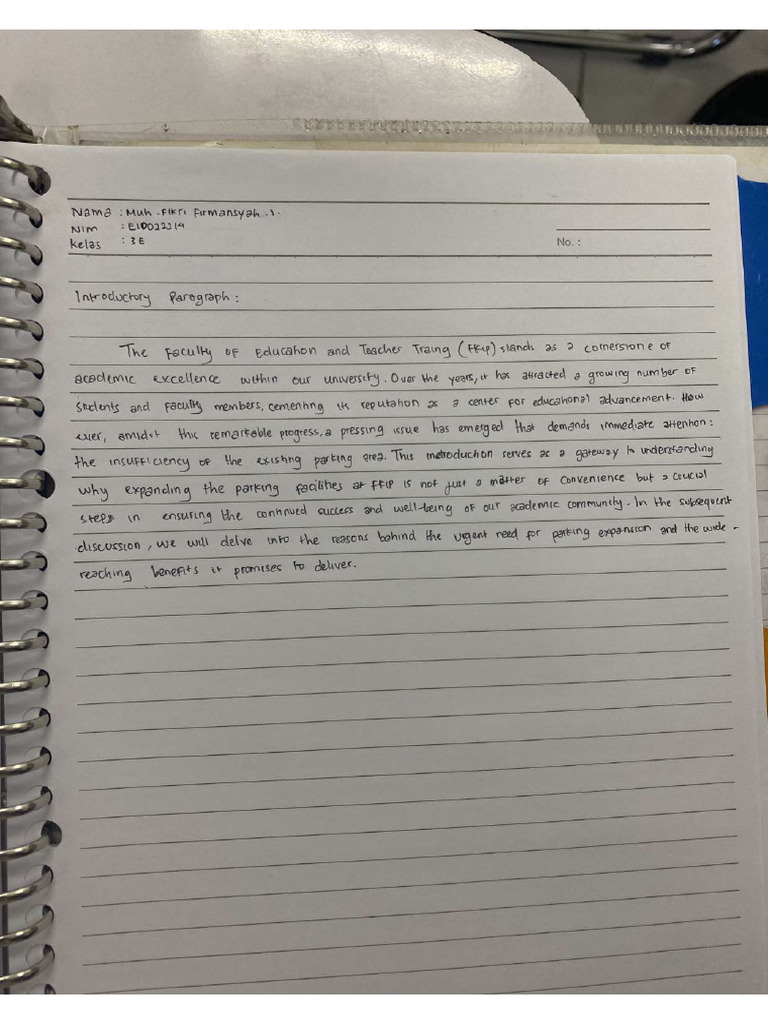 Nama : Muh .Fikri Firmansyah .S.
Nim : E1D022214
Kelas : 3E
No. :
Introductory Paragraph :
The Faculty of Education and Teacher Traing (FKIP) stands as a cornerstone of
academic excellence within our university. Over the years, it has attracted a growing number of
students and faculty members, cementing its reputation as a center for educational advancement. How
ever, amidst this remarkable progress, a pressing issue has emerged that demands immediate attention:
the insufficiency of the existing parking area. This introduction serves as a gateway to understanding
why expanding the parking facilities at FKIP is not just a matter of convenience but a crucial
steps in ensuring the continued success and well-being of our academic community. In the subsequent
discussion, we will delve into the reasons behind the urgent need for parking expansion and the wide-
reaching benefits it promises to deliver.